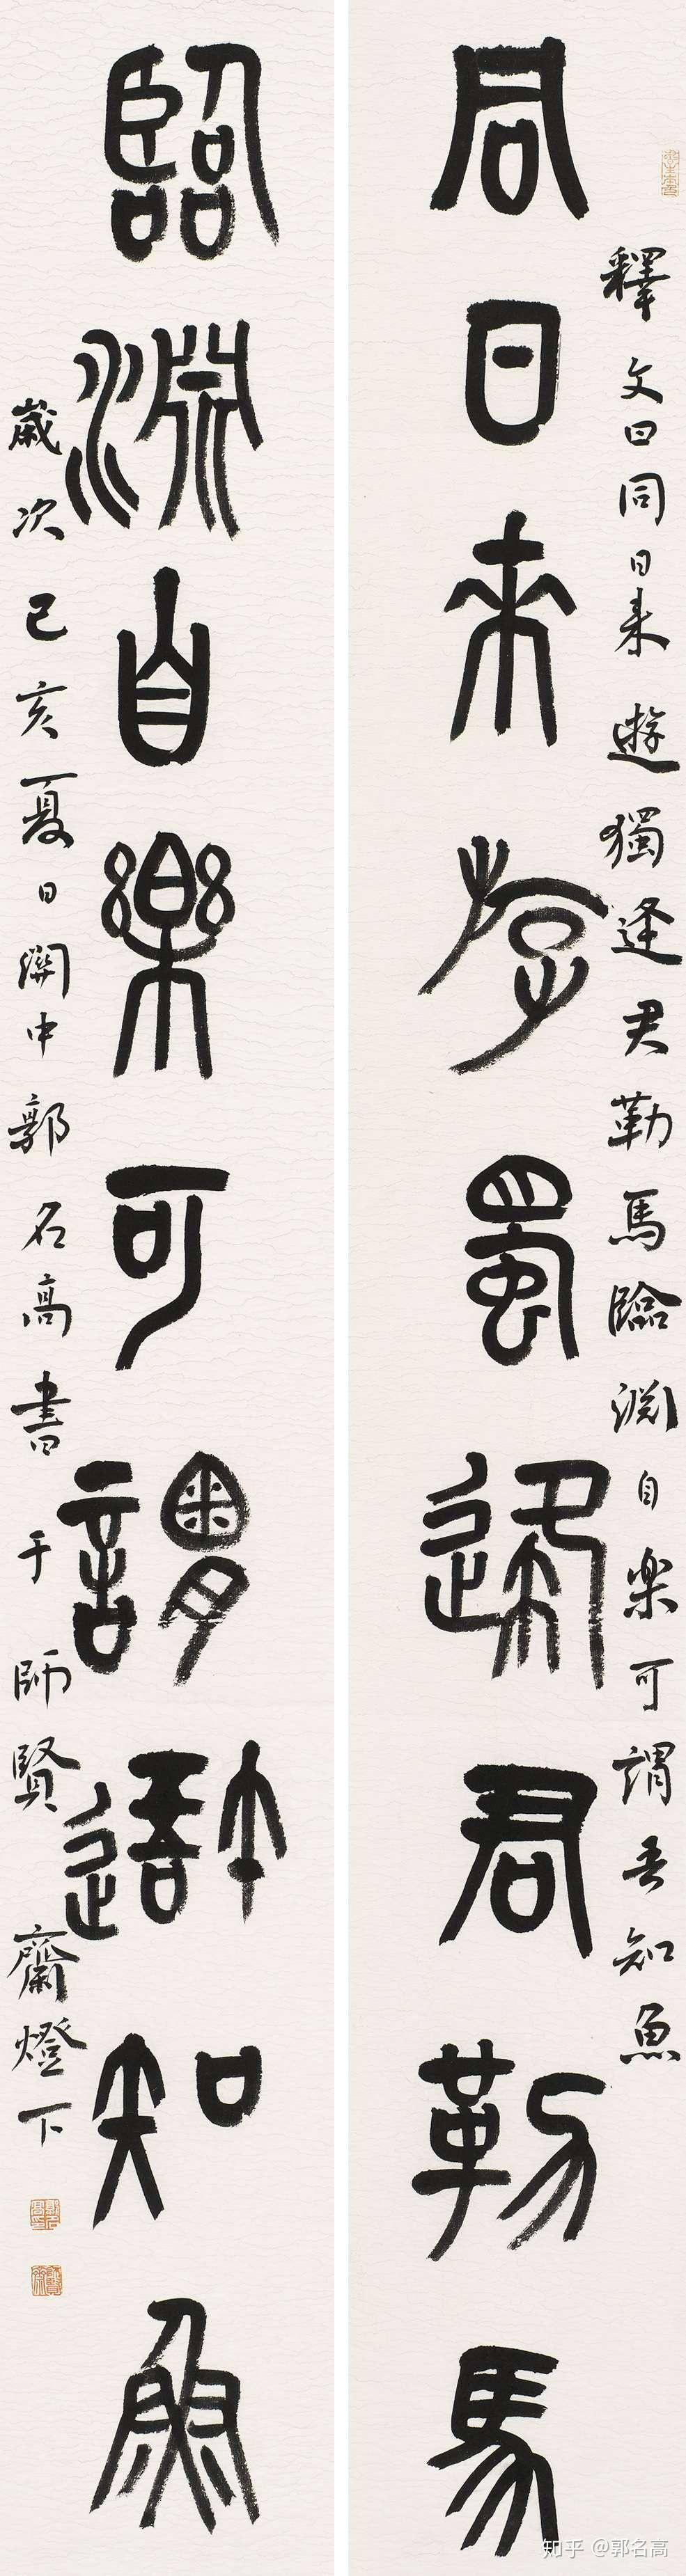 釋文曰同日来遊獨逢君勒馬臨淵自楽可謂吾知魚
同日來斿蜀逢君勒馬
臨淵自樂可謂吾知魚
歲次己亥夏日關中郭名高書于師賢齋燈下
知乎 @郭名高